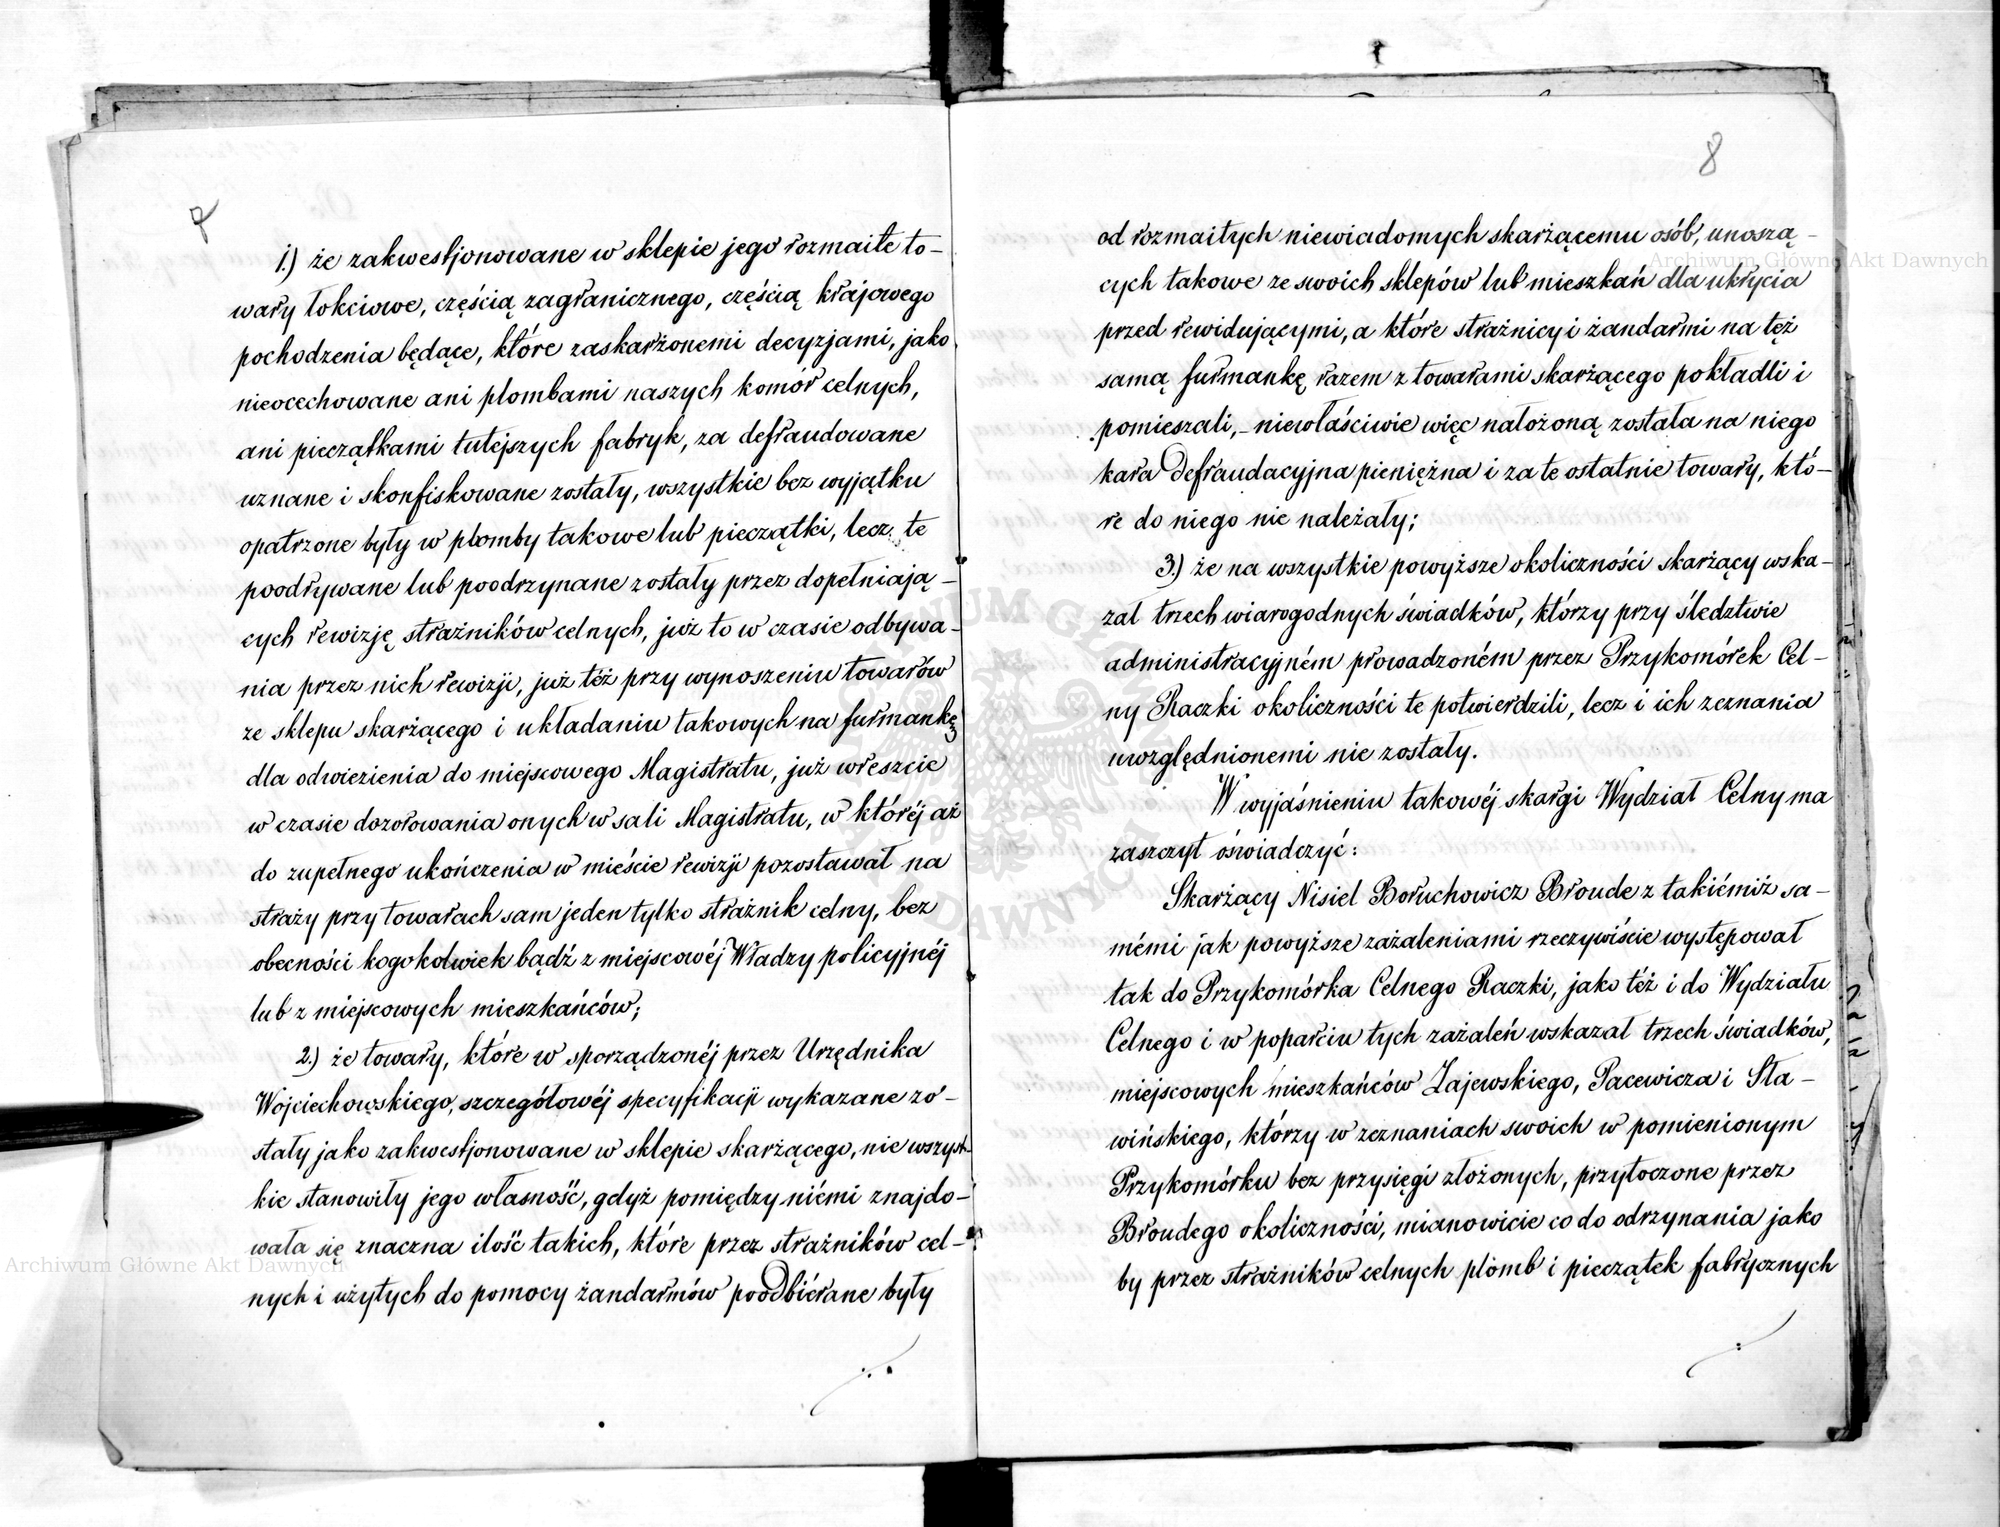 7
1.) że zakwestjonowane w sklepie jego rozmaite to-
wary łokciowe, częścią zagranicznego, częścią krajowego
pochodzenia będące, które zaskarżonemi decyzjami, jako
nieocechowane ani plombami naszych komór celnych,
ani pieczątkami tutejszych fabryk, za defraudowane
uznane i skonfiskowane zostały, wszystkie bez wyjątku
opatrzone były w plomby takowe lub pieczątki, lecz te
poodrywane lub poodrzynane zostały przez dopełniają-
cych rewizję strażników celnych, już to w czasie odbywa-
nia przez nich rewizji, już téż przy wynoszeniu towarów
ze sklepu skarżącego i układaniu takowych na furmankę
dla odwiezienia do miejscowego Magistratu, już wreszcie
w czasie dozorowania onych w sali Magistratu, w któréj aż
do zupełnego ukończenia w mieście rewizji pozostawał na
straży przy towarach sam jeden tylko strażnik celny, bez
obecności kogokolwiek bądź z miejscowéj Władzy policyjnéj
lub z miejscowych mieszkańców;
2.) że towary, które w sporządzonéj przez Urzędnika
Wojciechowskiego, szczegółowéj specyfikacji wykazane zo-
stały jako zakwestjonowane w sklepie skarżącego, nie wszyst-
kie stanowiły jego własność, gdyż pomiędzy niémi znajdo-
wała się znaczna ilość takich, które przez strażników cel-
nych i użytych do pomocy żandarmów poodbiérane były
8
od rozmaitych niewiadomych skarżącemu osób, unoszą-
cych takowe ze swoich sklepów lub mieszkań dla ukrycia
przed rewidującymi, a które strażnicy i żandarmi na też
samą furmankę razem z towarami skarżącego pokładli i
pomieszali, - niewłaściwie więc nałożoną została na niego
kara defraudacyjna pieniężna i za te ostatnie towary, któ-
re do niego nie należały;
3.) że na wszystkie powyższe okoliczności skarżący wska-
zał trzech wiarogodnych świadków, którzy przy śledztwie
administracyjném prowadzoném przez Przykomórek Cel-
ny Raczki okoliczności te potwierdzili, lecz i ich zeznania
uwzględnionemi nie zostały.
W wyjaśnieniu takowéj skargi Wydział Celny ma
zaszczyt oświadczyć:
Skarżący Nisiel Boruchowicz Broude z takiémiż sa-
mémi jak powyższe zażaleniami rzeczywiście występował
tak do Przykomórka Celnego Raczki, jako téż i do Wydziału
Celnego i w poparciu tych zażaleń wskazał trzech świadków,
miejscowych mieszkańców Zajewskiego, Pacewicza i Sta-
wińskiego, którzy w zeznaniach swoich w pomienionym
Przykomórku bez przysięgi złożonych, przytoczone przez
Broudego okoliczności, mianowicie co do odrzynania jako
by przez strażników celnych plomb i pieczątek fabrycznych
Archiwum Główne Akt Dawnych
Archiwum Główne Akt Dawnych